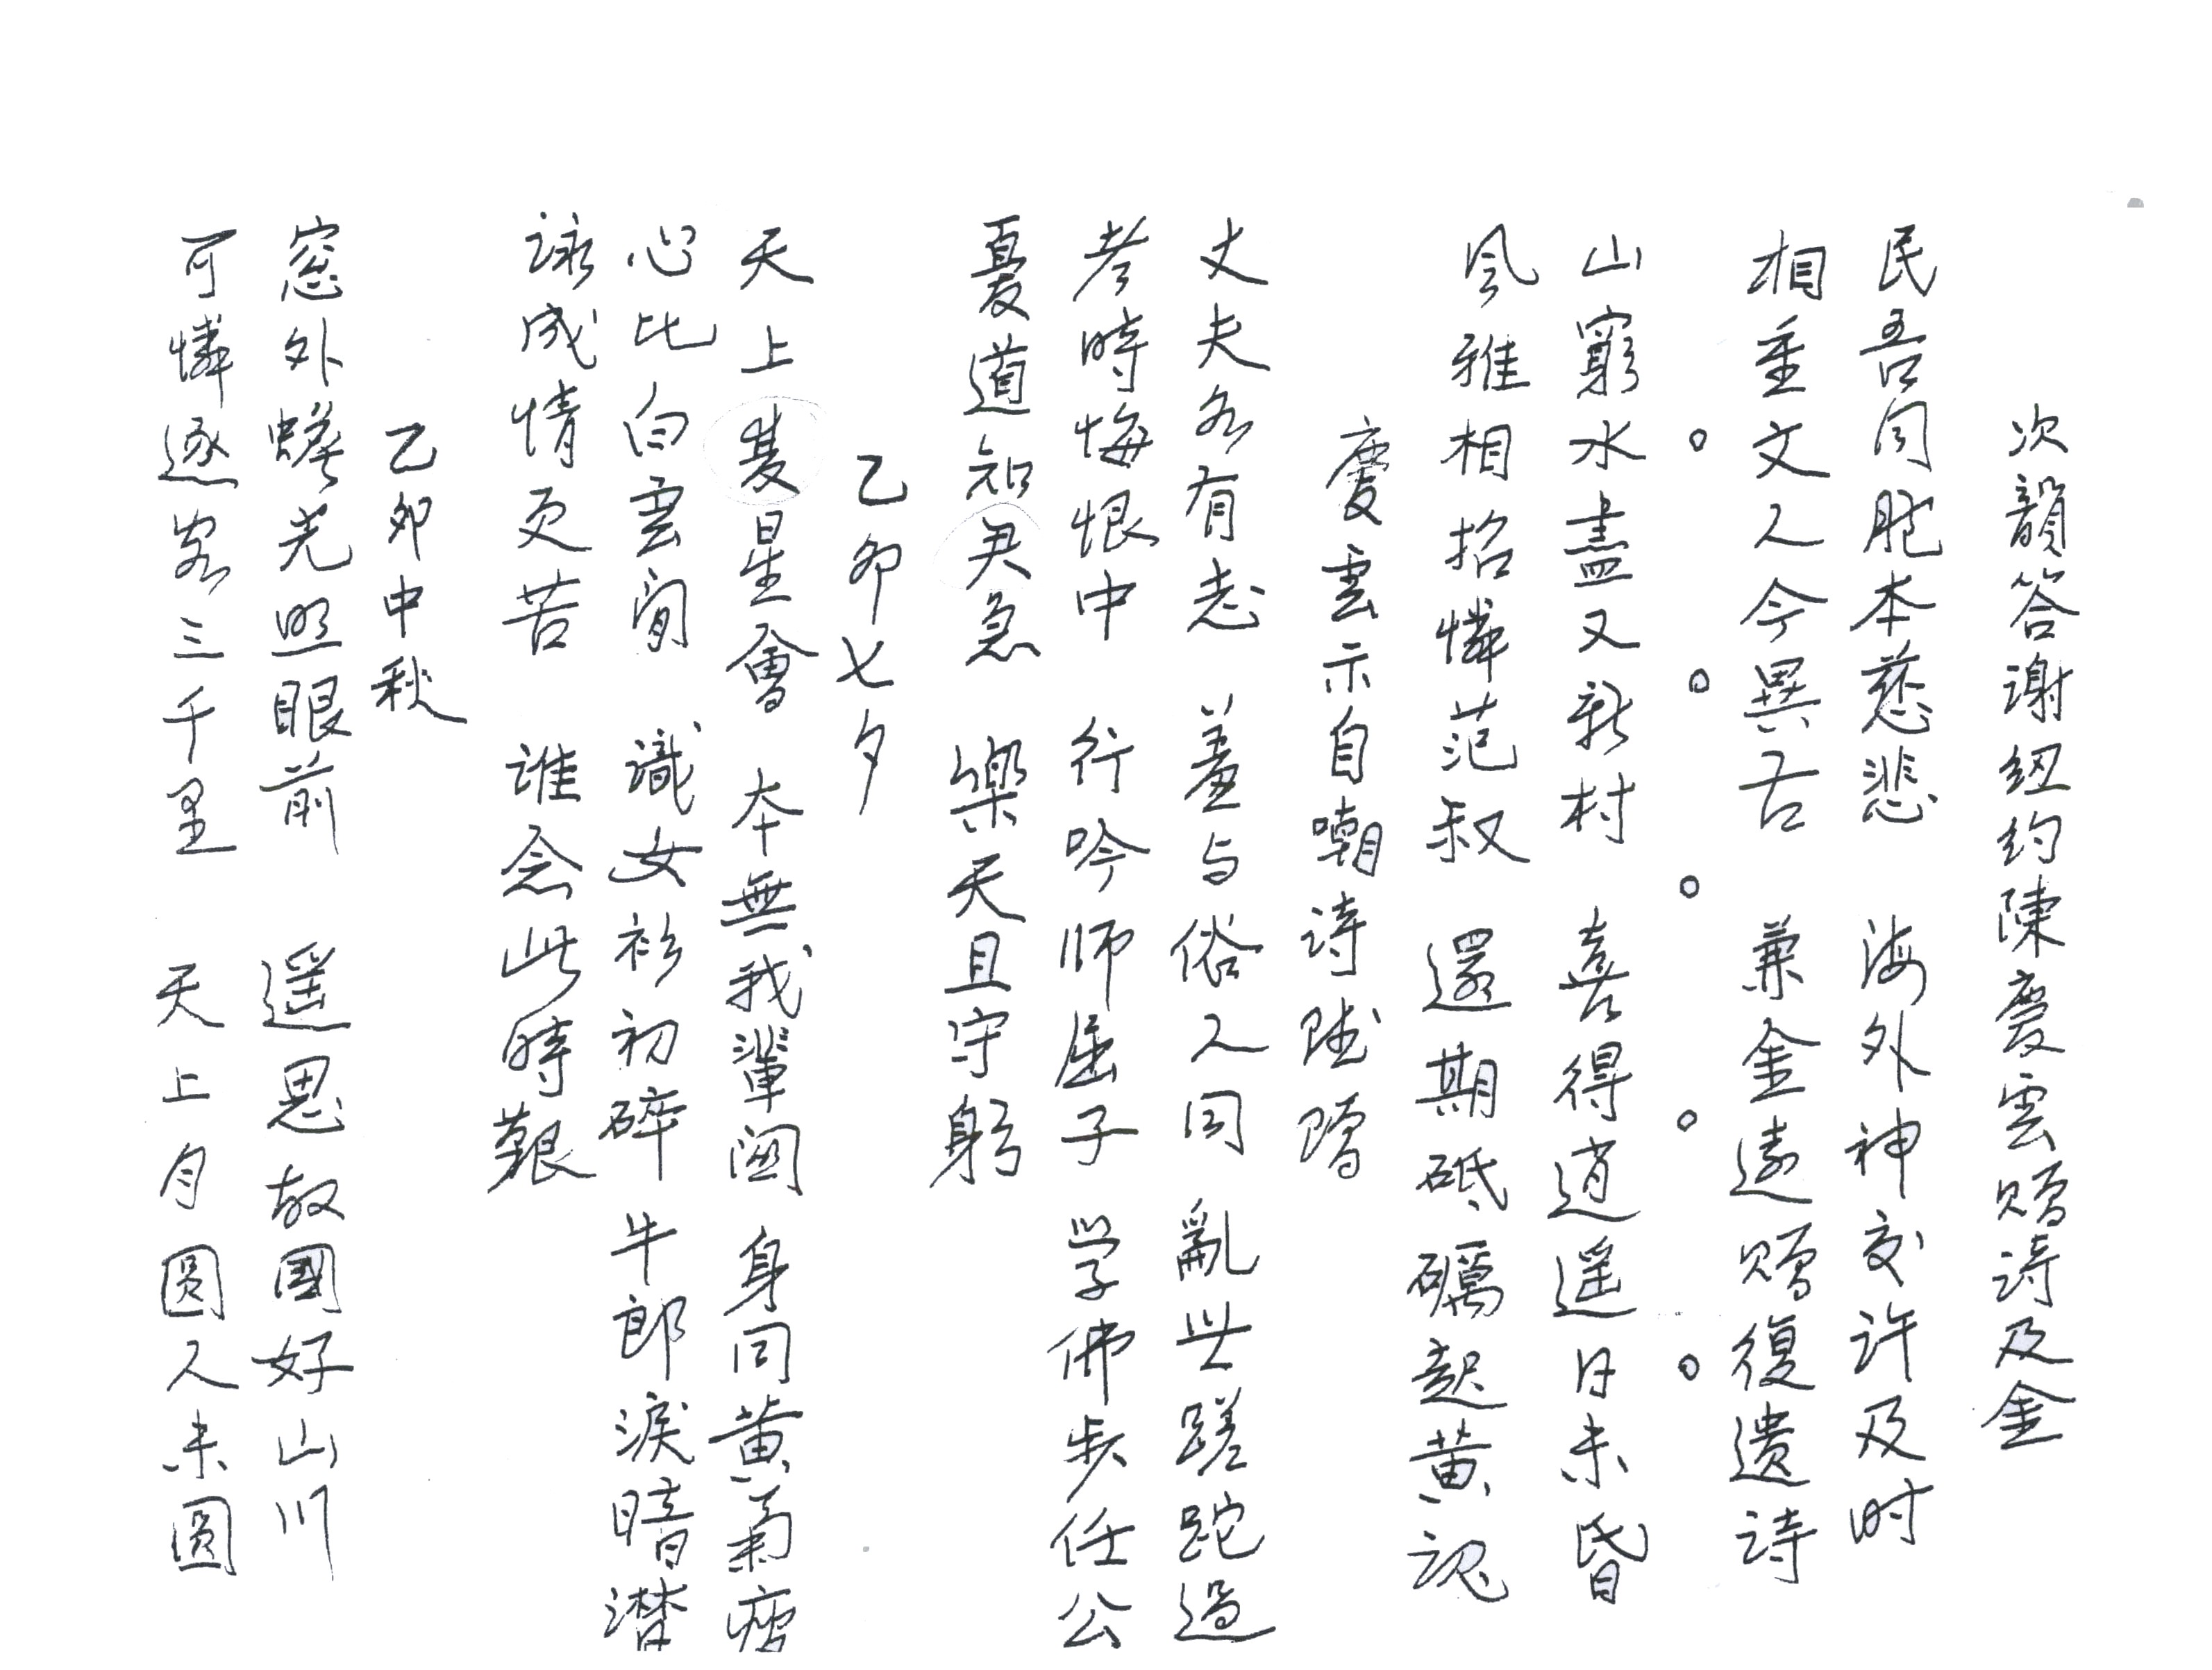 次韻答谢纽约陳慶雲赠诗及金
民吾同胞本慈悲 海外神交许及时
相重文人今異古 兼金遠赠復遗诗
。。。。。
山窮水盡又新村 喜得逍遥日未昏
风雅相招憐范叔 還期砥礪起黄魂
慶雲示自嘲诗賦赠
丈夫各有志 羞与俗人同 亂世蹉跎過
老時悔恨中 行吟师屈子 学佛步任公
憂道知尹急 樂天且守躬
乙卯七夕
天上雙星會 本無我輩闗 身同黄菊瘦
心比白雲閒 識女衫初碎 牛郎淚暗潜
詠成情更苦 誰念此時艱
乙卯中秋
窓外蟾光照眼前 遥思故國好山川
可憐逐客三千里 天上月圓人未圓